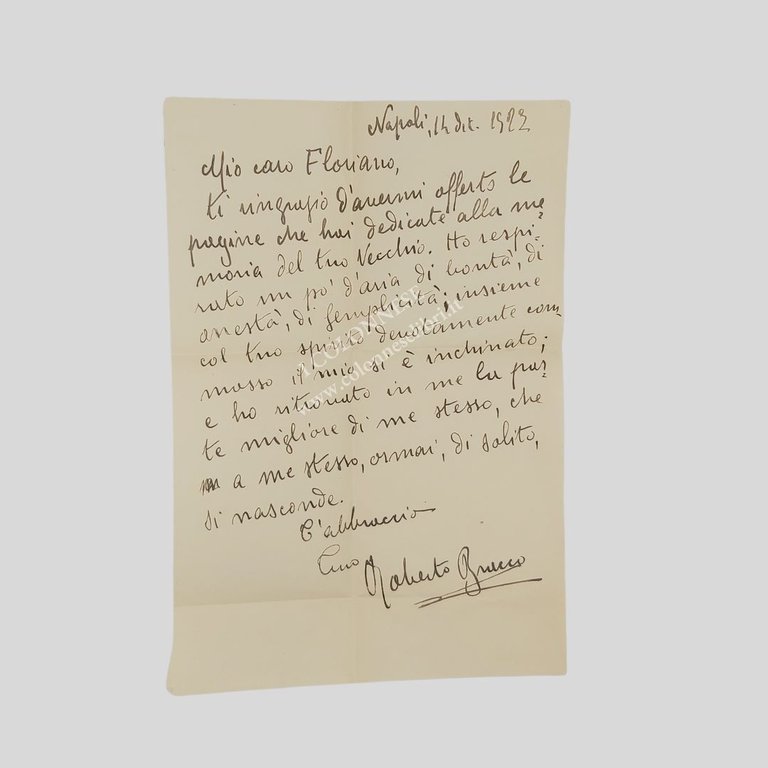 Napoli, 14 dic. 1922
Mio caro Floriano,
ti ringrazio d'avermi offerto le
pagine che hai dedicate alla me-
moria del tuo Vecchio. Ho respi-
rato un po' d'aria di bontà, di
onestà, di semplicità; insieme
col tuo spirito devotamente com-
mosso il mio si è inchinato;
e ho ritrovato in me la par-
te migliore di me stesso, che
a me stesso, ormai, di solito,
si nasconde.
T'abbraccio
Tuo Roberto Bracco
COLONNESE
www.colonneselibri.it